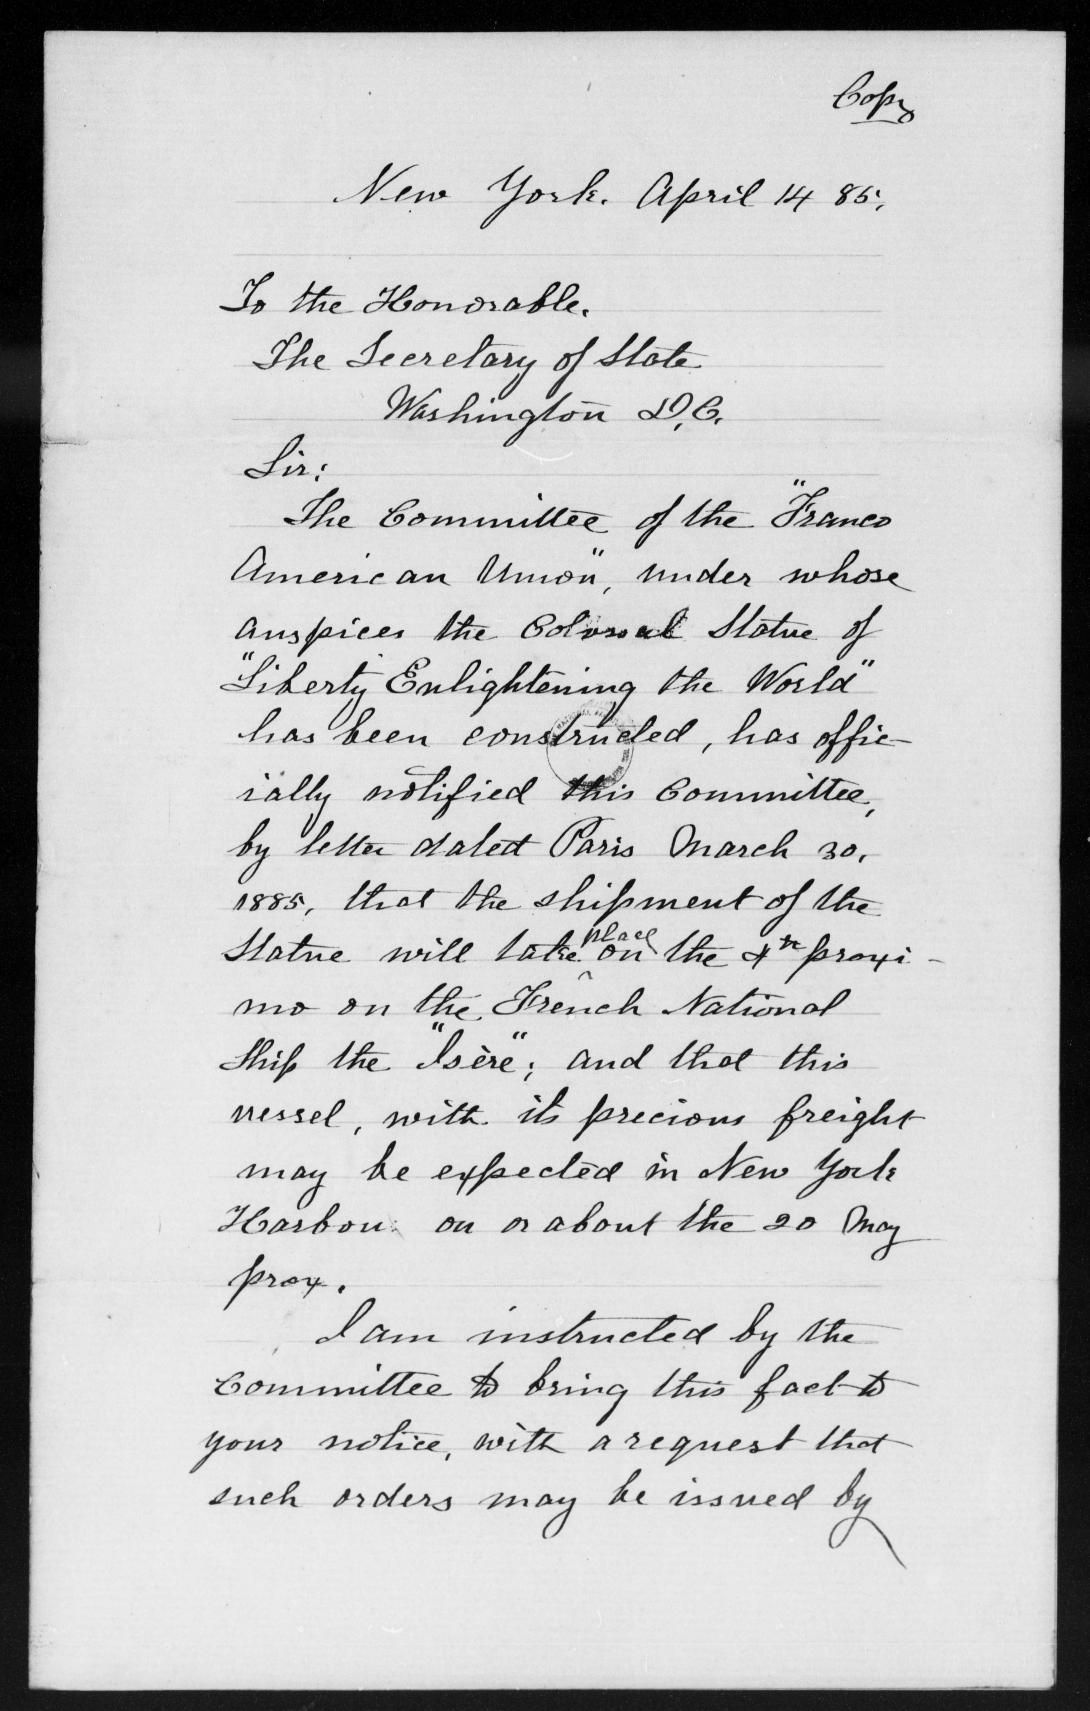 Copy
New York. April 14 85.
To the Honorable.
The Secretary of State
Washington D.C.
Sir:
The Committee of the "Franco
American Union", under whose
auspices the Colossal Statue of
"Liberty Enlightening the World"
has been constructed, has offic-
ially notified this Committee,
by letter dated Paris March 30.
1885, that the shipment of the
Statue will take place on the 4th proxi-
mo on the French National
Ship the "Isère"; and that this
vessel, with its precious freight
may be expected in New York
Harbour on or about the 20 May
prox.
I am instructed by the
Committee to bring this fact to
your notice, with a request that
such orders may be issued by